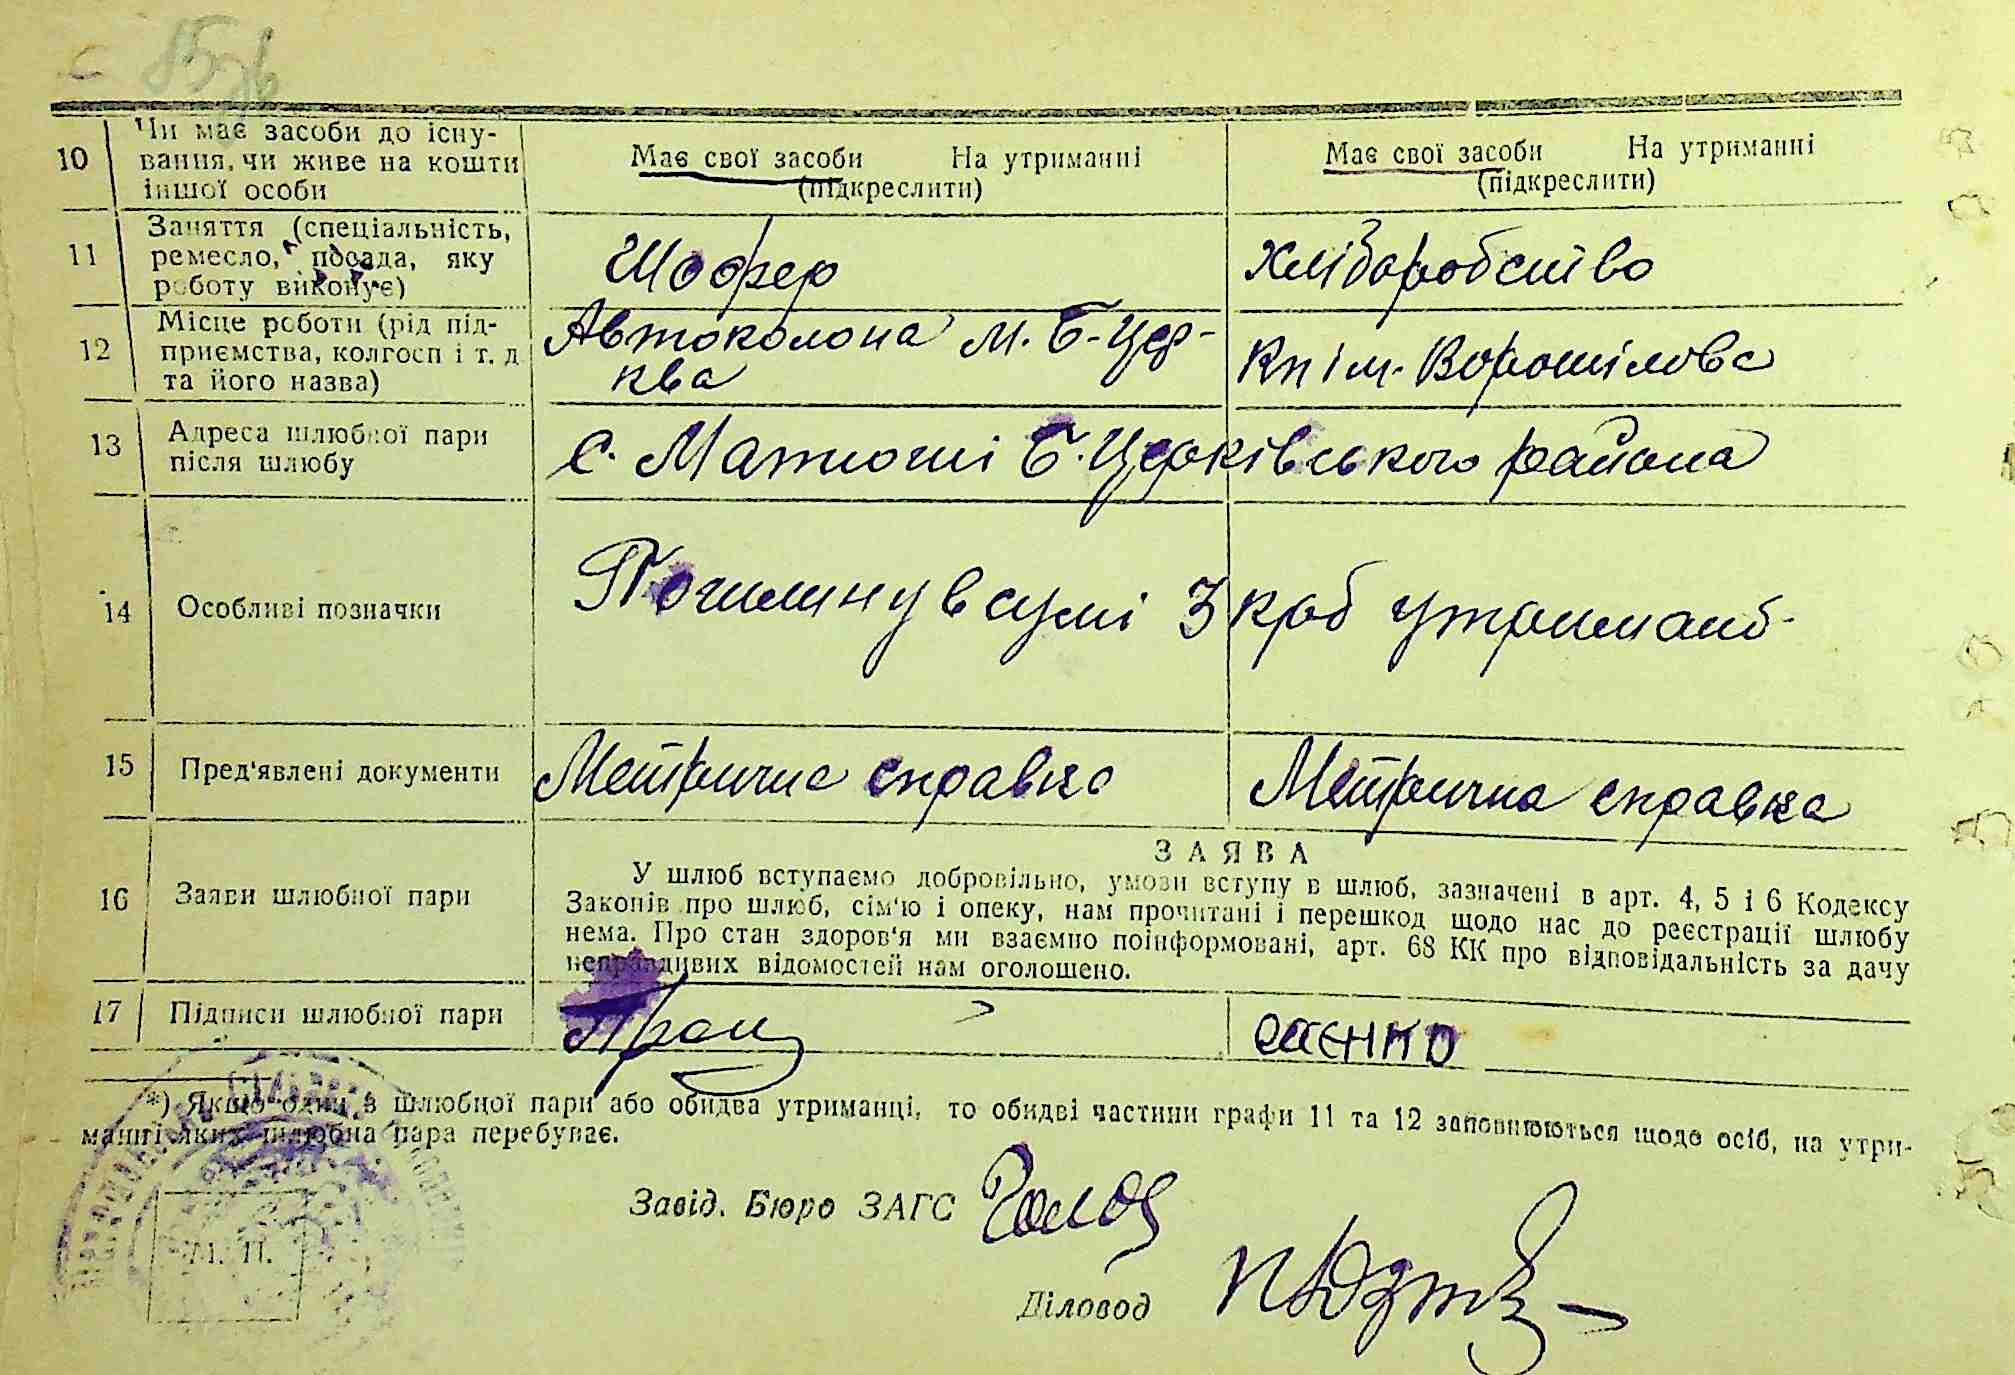 10 Чи має засоби до існу-
вання, чи живе на кошти
іншої особи
Має свої засоби На утриманні
(підкреслити)
Має свої засоби На утриманні
(підкреслити)
11 Заняття (спеціальність,
ремесло, посада, яку
роботу виконує)
Шофер
Хліборобство
12 Місце роботи (рід під-
приємства, колгосп і т. д
та його назва)
Автоколона м. Б-Цер-
ква
Кп ім. Ворошілова
13 Адреса шлюбної пари
після шлюбу
с. Матюші Б. Церківського района
14 Особливі позначки
Пошлину в сумі 3 крб утримано-
15 Пред'явлені документи
Метрична справка
Метрична справка
16 Заяви шлюбної пари
ЗАЯВА
У шлюб вступаємо добровільно, умови вступу в шлюб, зазначені в арт. 4, 5 і 6 Кодексу
Законів про шлюб, сім'ю і опеку, нам прочитані і перешкод щодо нас до реєстрації шлюбу
нема. Про стан здоров'я ми взаємно поінформовані, арт. 68 КК про відповідальність за дачу
неправдивих відомостей нам оголошено.
17 Підписи шлюбної пари
*) Якщо один з шлюбної пари або обидва утриманці, то обидві частини графи 11 та 12 заповнюються щодо осіб, на утри-
манні яких шлюбна пара перебуває.
Завід. Бюро ЗАГС
Діловод
М. П.